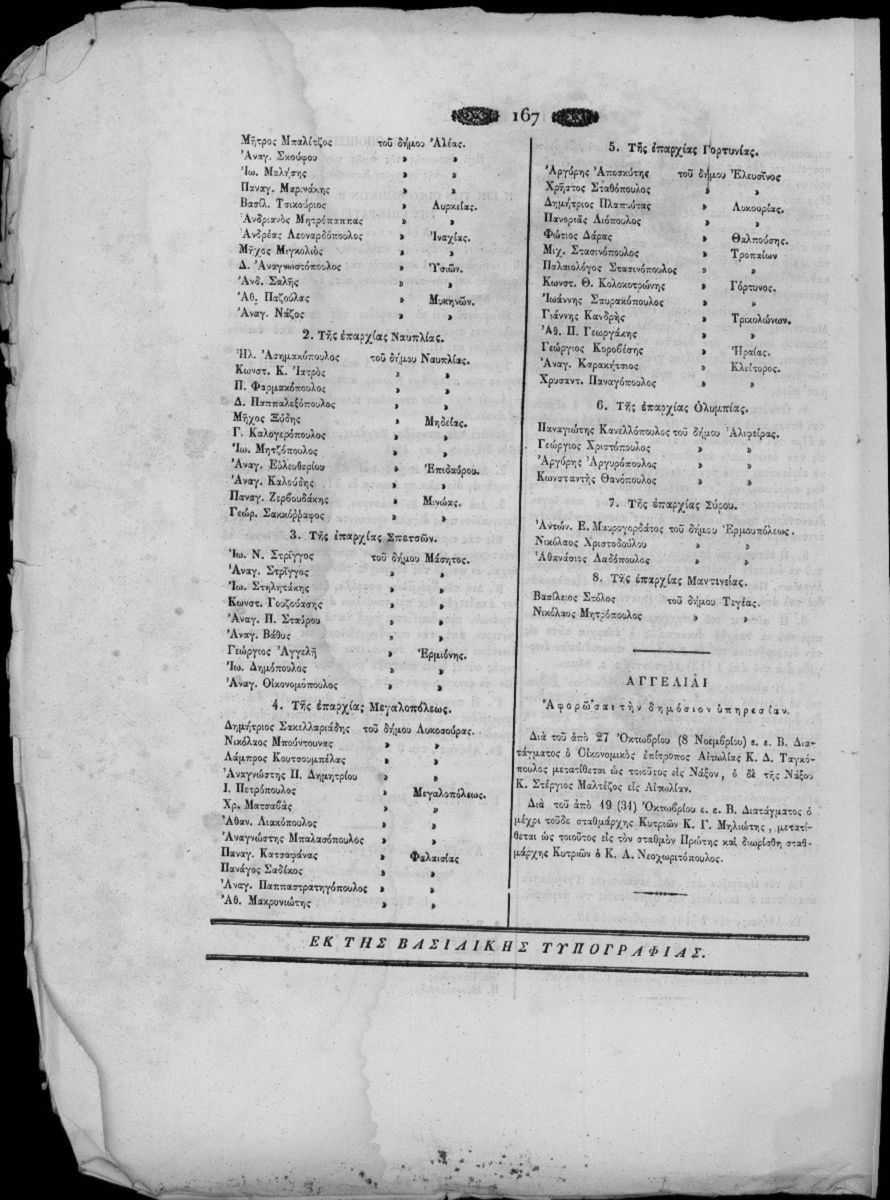 167
Μῆτρος Μπαλίτζος τοῦ δήμου Ἀλέας.
Ἀναγ. Σκούφου » »
Ἰω. Μαλήσης » »
Παναγ. Μαρινάκης » »
Βασίλ. Τσικούριος » Λυρκείας.
Ἀνδριανὸς Μητρόπαππας » »
Ἀνδρέας Λεοναρδόπουλος » Ἰναχίας.
Μῆχος Μιγκολιὸς » »
Δ. Ἀναγνωστόπουλος » Ὑσιῶν.
Ἀνδ. Σαλῆς » »
Ἀθ. Παζούλας » Μυκηνῶν.
Ἀναγ. Νάζος » »
2. Τῆς ἐπαρχίας Ναυπλίας.
Ἠλ. Ἀσημακόπουλος τοῦ δήμου Ναυπλίας.
Κωνστ. Κ. Ἰατρὸς » »
Π. Φαρμακόπουλος » »
Δ. Παππαλεξόπουλος » »
Μῆχος Ξύδης » Μηδείας.
Γ. Καλογερόπουλος » »
Ἰω. Μητζόπουλος » »
Ἀναγ. Εὐλευθερίου » Ἐπιδαύρου.
Ἀναγ. Καλούδης » »
Παναγ. Ζερβουδάκης » Μινώας.
Γεώρ. Σακκόρραφος » »
3. Τῆς ἐπαρχίας Σπετσῶν.
Ἰω. Ν. Στρίγγος τοῦ δήμου Μάσητος.
Ἀναγ. Στρίγγος » »
Ἰω. Στηλητάκης » »
Κωνστ. Γουζούασης » »
Ἀναγ. Π. Σταύρου » »
Ἀναγ. Βάθυς » »
Γεώργιος Ἀγγελῆ » Ἑρμιόνης.
Ἰω. Δημόπουλος » »
Ἀναγ. Οἰκονομόπουλος » »
4. Τῆς ἐπαρχίας Μεγαλοπόλεως.
Δημήτριος Σακελλαριάδης τοῦ δήμου Λυκοσούρας.
Νικόλαος Μπούντουνας » »
Λάμπρος Κουτσουμπέλας » »
Ἀναγνώστης Π. Δημητρίου » »
Ι. Πετρόπουλος » Μεγαλοπόλεως.
Χρ. Ματσαβὰς » »
Ἀθαν. Λιακόπουλος » »
Ἀναγνώστης Μπαλασόπουλος » »
Παναγ. Κατσαφάνας » Φαλαισίας
Πανάγος Σαδέκος » »
Ἀναγ. Παππαστρατηγόπουλος » »
Ἀθ. Μακρυνιώτης » »
5. Τῆς ἐπαρχίας Γορτυνίας.
Ἀργύρης Ἀποσκύτης τοῦ δήμου Ἐλευσῖνος
Χρῆστος Σταθόπουλος » »
Δημήτριος Πλαπιώτας » Λυκουρίας.
Πανοριᾶς Λιόπουλος » »
Φώτιος Δάρας » Θαλπούσης.
Μιχ. Στασινόπουλος » Τροπαίων
Παλαιολόγος Στασινόπουλος » »
Κωνστ. Θ. Κολοκοτρώνης » Γόρτυνος.
Ἰωάννης Σπυρακόπουλος » »
Γιάννης Κανδρῆς » Τρικολώνων.
Ἀθ. Π. Γεωργάκης » »
Γεώργιος Κοροβέσης » Ἡραίας.
Ἀναγ. Καρακήτσιος » Κλείτορος.
Χρυσαντ. Παναγόπουλος » »
6. Τῆς ἐπαρχίας Ὀλυμπίας.
Παναγιώτης Κανελλόπουλος τοῦ δήμου Ἀλιφείρας.
Γεώργιος Χριστόπουλος » »
Ἀργύρης Ἀργυρόπουλος » »
Κωνσταντῆς Θανόπουλος » »
7. Τῆς ἐπαρχίας Σύρου.
Ἀντών. Ε. Μαυρογορδάτος τοῦ δήμου Ἑρμουπόλεως.
Νικόλαος Χριστοδούλου » »
Ἀθανάσιος Λαδόπουλος » »
8. Τῆς ἐπαρχίας Μαντινείας.
Βασίλειος Στόλος τοῦ δήμου Τεγέας.
Νικόλαος Μητρόπουλος » »
ΑΓΓΕΛΙΑΙ
Ἀφορῶσαι τὴν δημόσιον ὑπηρεσίαν.
Διὰ τοῦ ἀπὸ 27 Ὀκτωβρίου (8 Νοεμβρίου) ε. ε. Β. Δια-
τάγματος ὁ Οἰκονομικὸς ἐπίτροπος Αἰτωλίας Κ. Δ. Ταγκό-
πουλος μετατίθεται ὡς τοιοῦτος εἰς Νάξον, ὁ δὲ τῆς Νάξου
Κ. Στέργιος Μαλτέζος εἰς Αἰτωλίαν.
Διὰ τοῦ ἀπὸ 19 (31) Ὀκτωβρίου ε. ε. Β. Διατάγματος ὁ
μέχρι τοῦδε σταθμάρχης Κυτριῶν Κ. Γ. Μηλιώτης, μετατί-
θεται ὡς τοιοῦτος εἰς τὸν σταθμὸν Πρώτης καὶ διωρίσθη σταθ-
μάρχης Κυτριῶν ὁ Κ. Α. Νεοχωριτόπουλος.
ΕΚ ΤΗΣ ΒΑΣΙΛΙΚΗΣ ΤΥΠΟΓΡΑΦΙΑΣ.